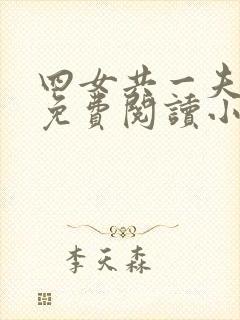 四女共一夫
免費閱讀小
李天森